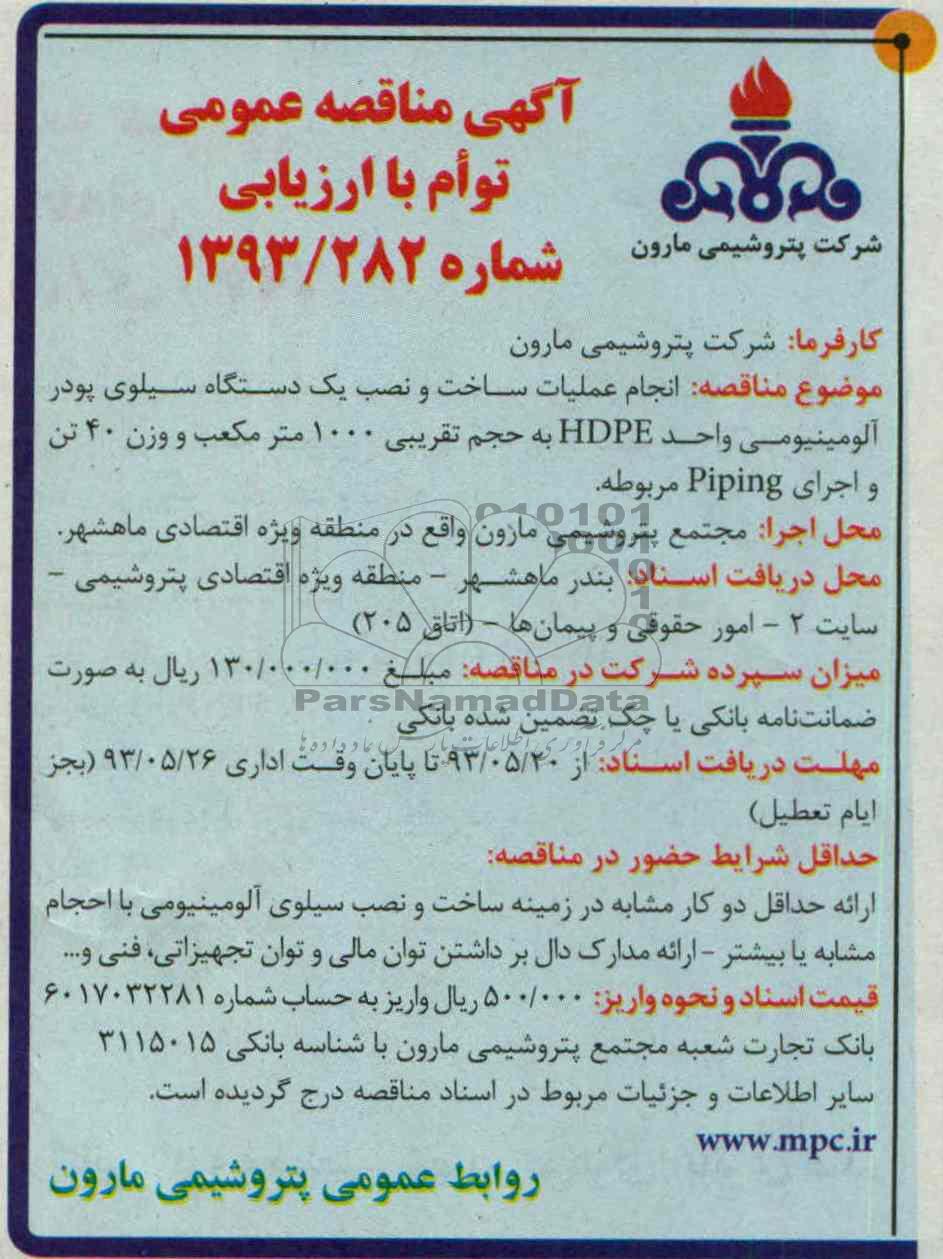 آگهی مناقصه عمومی
توأم با ارزیابی
شماره ۱۳۹۳/۲۸۲
شرکت پتروشیمی مارون
کارفرما: شرکت پتروشیمی مارون
موضوع مناقصه: انجام عملیات ساخت و نصب یک دستگاه سیلوی پودر
آلومینیومی واحد HDPE به حجم تقریبی ۱۰۰۰ متر مکعب و وزن ۴۰ تن
و اجرای Piping مربوطه.
محل اجرا: مجتمع پتروشیمی مارون واقع در منطقه ویژه اقتصادی ماهشهر.
محل دریافت اسناد: بندر ماهشهر – منطقه ویژه اقتصادی پتروشیمی –
سایت ۲ – امور حقوقی و پیمان‌ها – (اتاق ۲۰۵)
میزان سپرده شرکت در مناقصه: مبلغ ۱۳۰/۰۰۰/۰۰۰ ریال به صورت
ParsNamadData
ضمانت‌نامه بانکی یا چک تضمین شده بانکی
مهلت دریافت اسناد: از ۹۳/۰۵/۲۰ تا پایان وقت اداری ۹۳/۰۵/۲۶ (بجز
ایام تعطیل)
حداقل شرایط حضور در مناقصه:
ارائه حداقل دو کار مشابه در زمینه ساخت و نصب سیلوی آلومینیومی با احجام
مشابه یا بیشتر – ارائه مدارک دال بر داشتن توان مالی و توان تجهیزاتی، فنی و...
قیمت اسناد و نحوه واریز: ۵۰۰/۰۰۰ ریال واریز به حساب شماره ۶۰۱۷۰۳۲۲۸۱
بانک تجارت شعبه مجتمع پتروشیمی مارون با شناسه بانکی ۳۱۱۵۰۱۵
سایر اطلاعات و جزئیات مربوط در اسناد مناقصه درج گردیده است.
www.mpc.ir
روابط عمومی پتروشیمی مارون